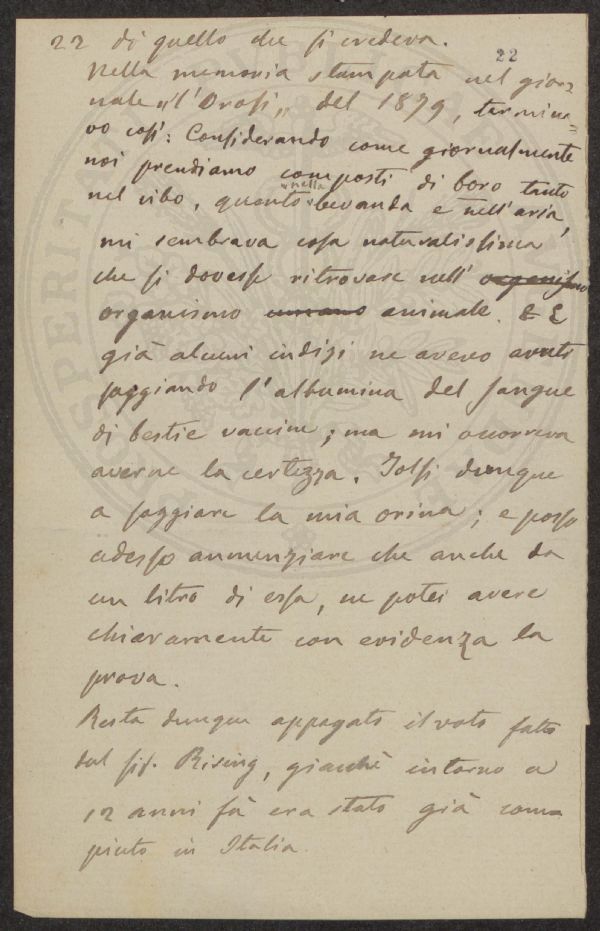 22 di quello che si credeva.
22
Nella memoria stampata nel gior=
nale "l'Orosi„ del 1879, termina=
vo così: Considerando come giornalmente
noi prendiamo composti di boro tanto
nel cibo, quanto nella bevanda e nell'aria,
mi sembrava cosa naturalissima
che si dovesse ritrovare nell' organismo
organismo umano animale. E
già alcuni indizi ne avevo avuti
saggiando l'albumina del sangue
di bestie vaccine; ma mi occorreva
averne la certezza. Tolsi dunque
a saggiare la mia orina; e posso
adesso annunziare che anche da
un litro di essa, ne potei avere
chiaramente con evidenza la
prova.
Resta dunque appagato il voto fatto
dal sig. Rising, giacchè intorno a
12 anni fà era stato già com=
piuto in Italia.